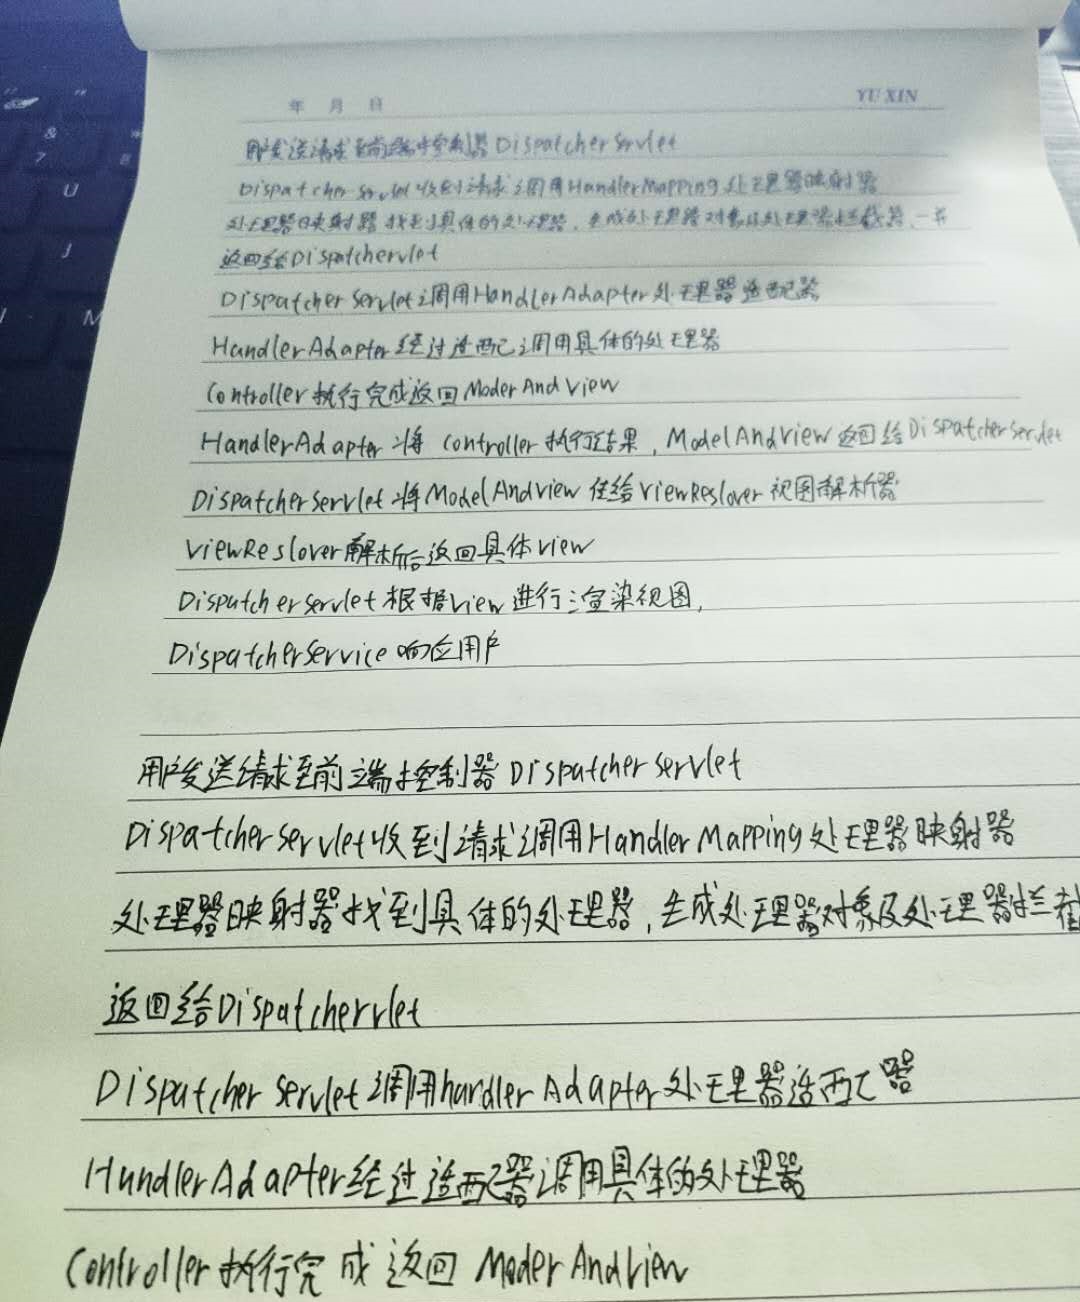 年 月 日 YU XIN
用户发送请求至前端控制器DispatcherServlet
DispatcherServlet收到请求调用HandlerMapping处理器映射器
处理器映射器找到具体的处理器,生成处理器对象及处理器拦截器,一并
返回给Dispatchervlet
DispatcherServlet调用HandlerAdapter处理器适配器
HandlerAdapter经过适配调用具体的处理器
Controller执行完成返回ModerAndView
HandlerAdapter将controller执行结果,ModelAndView返回给DispatcherServlet
DispatcherServlet将ModelAndView传给ViewReslover视图解析器
ViewReslover解析后返回具体View
DispatcherServlet根据View进行渲染视图,
DispatcherService响应用户
用户发送请求至前端控制器DispatcherServlet
DispatcherServlet收到请求调用HandlerMapping处理器映射器
处理器映射器找到具体的处理器,生成处理器对象及处理器拦截
返回给Dispatchervlet
DispatcherServlet调用handlerAdapter处理器适配器
HandlerAdapter经过适配器调用具体的处理器
Controller执行完成返回ModerAndView
& 7 8 U J M